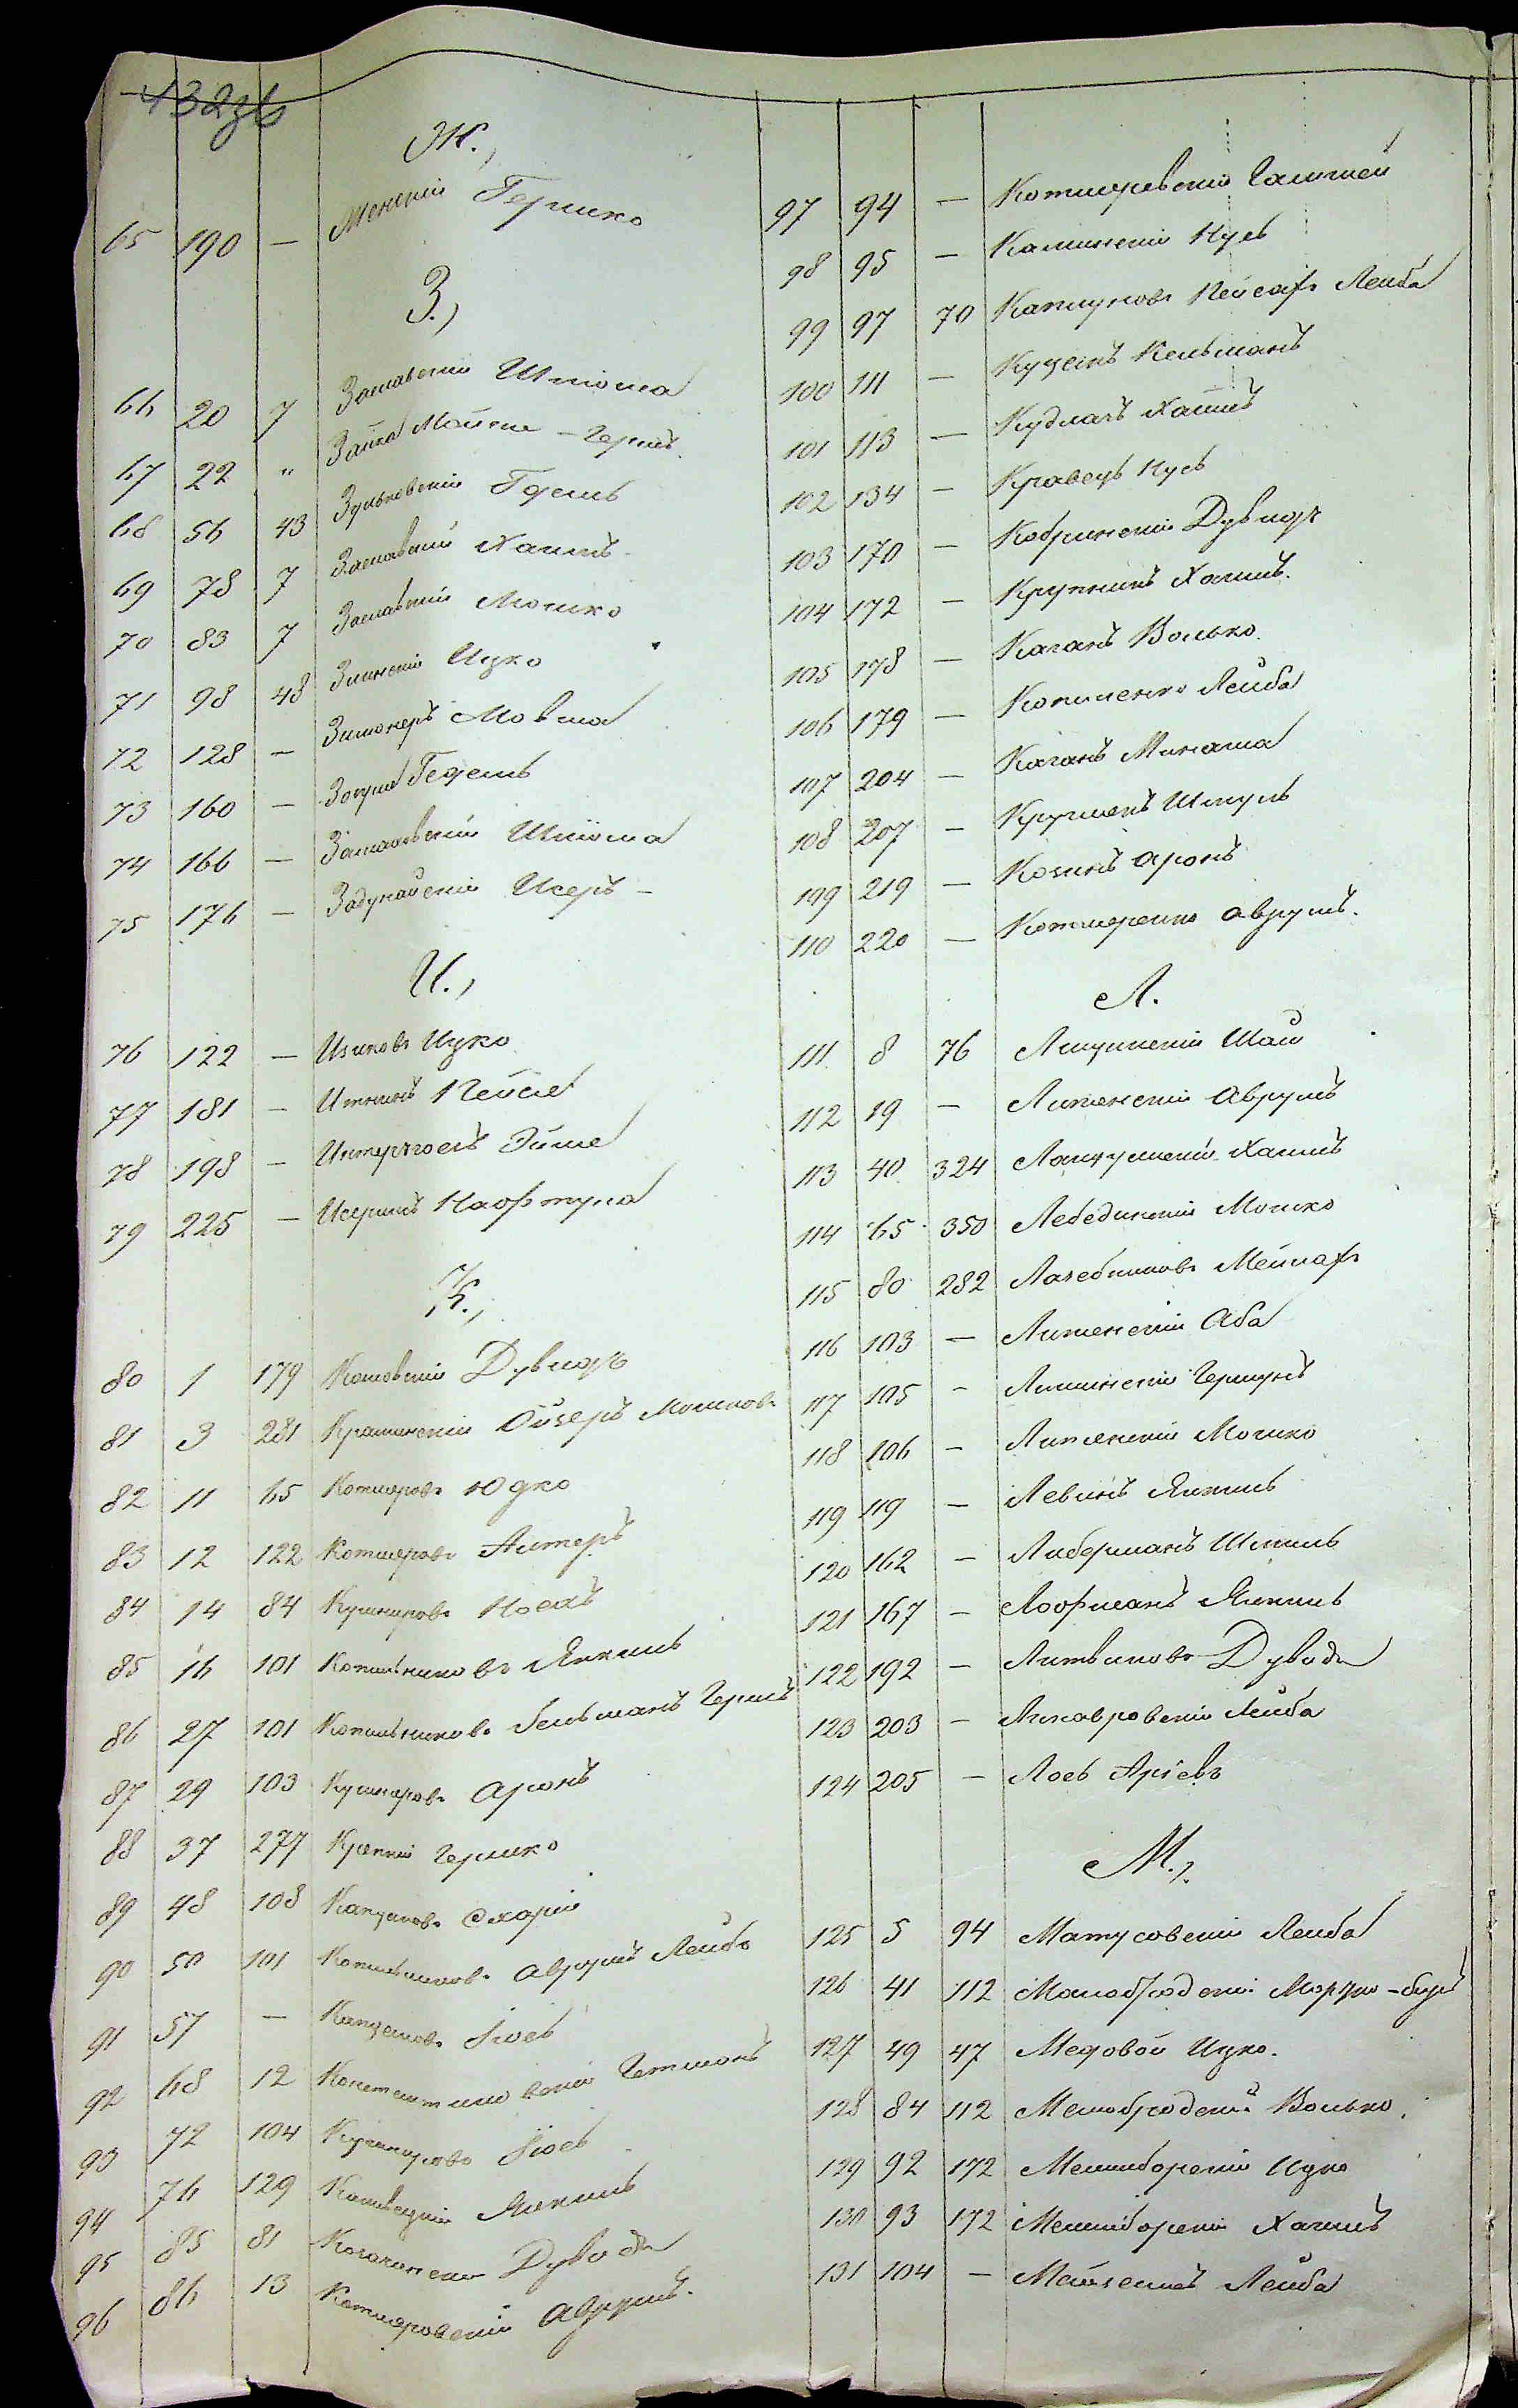 432
Ж.,
65 190 — Менскій Гершко
З.,
66 20 7 Заславскій Шлиома
67 22 " Зайка Мойше - Гершъ
68 56 43 Зуньковскій Годель
69 78 7 Заславскій Хаимъ
70 83 7 Заславскій Мошко
71 98 48 Злинскій Ицко
72 128 — Зильонеръ Мовша
73 160 — Гедель
74 166 — Заславскій Шліома
75 176 — Задунайскій Исеръ -
И.,
76 122 — Ициковъ Ицко
77 181 — Иткинъ Пейсе
78 198 — Интерголъ Эйше
79 225 — Исерлисъ Нафтула
К.,
80 1 179 Косовскій Дувидъ
81 3 281 Крашинскій Ойзеръ Мошковъ
82 11 65 Котляровъ Юдко
83 12 122 Котляровъ Алтеръ
84 14 84 Кушнировъ Носахъ
85 16 101 Копильниковъ Янкель
86 27 101 Копильниковъ Кельманъ Гершъ
87 29 103 Кушнировъ Аронъ
88 37 277 Крапкій Гершко
89 48 108 Капцановъ Схарія
90 50 101 Копильниковъ Аврумъ Лейба
91 57 — Капцановъ Іосъ
92 68 12 Константиновскій Гетманъ
93 72 104 Кушнировъ Іосъ
94 76 129 Коневецкій Янкель
95 85 81 Коганскій Дувидъ
96 86 13 Котляровскій Аврумъ.
97 94 — Котляревскій
98 95 — Калинскій Нусъ
99 97 70 Каплуновъ Пейсахъ Лейба
100 111 — Кельманъ
101 113 — Кудлачъ Хаимъ
102 134 — Кравецъ Нусъ
103 170 — Кобринскій Дувидъ
104 172 — Крупникъ Хаимъ.
105 178 — Каганъ Волько.
106 179 — Копиленко Лейба
107 204 — Каганъ Минаша
108 207 — Кругликъ Шмуль
109 219 — Козинъ Аронъ
110 220 — Котляренко Аврумъ.
Л.
111 8 76 Шаи
112 19 — Липенскій Аврумъ
113 40 324 Хаимъ
114 65 350 Лебединскій Мошко
115 80 282 Лазебниковъ Мейлахъ
116 103 — Липенскій Аба
117 105 — Липинскій Гершунъ
118 106 — Липенскій Мошко
119 119 — Левинъ Янкель
120 162 — Либерманъ Шмиль
121 167 — Лофманъ Янкель
122 192 — Литвиновъ Дувидъ
123 203 — Лейба
124 205 — Лоевъ Аріевъ
М.,
125 5 94 Матусовскій Лейба
126 41 112 Малобродскій
127 49 47 Медовой Ицко.
128 84 112 Малобродскій Волько.
129 92 172 Межиборскій Ицко
130 93 172 Межиборскій Хаимъ
131 104 — Мейзелисъ Лейба